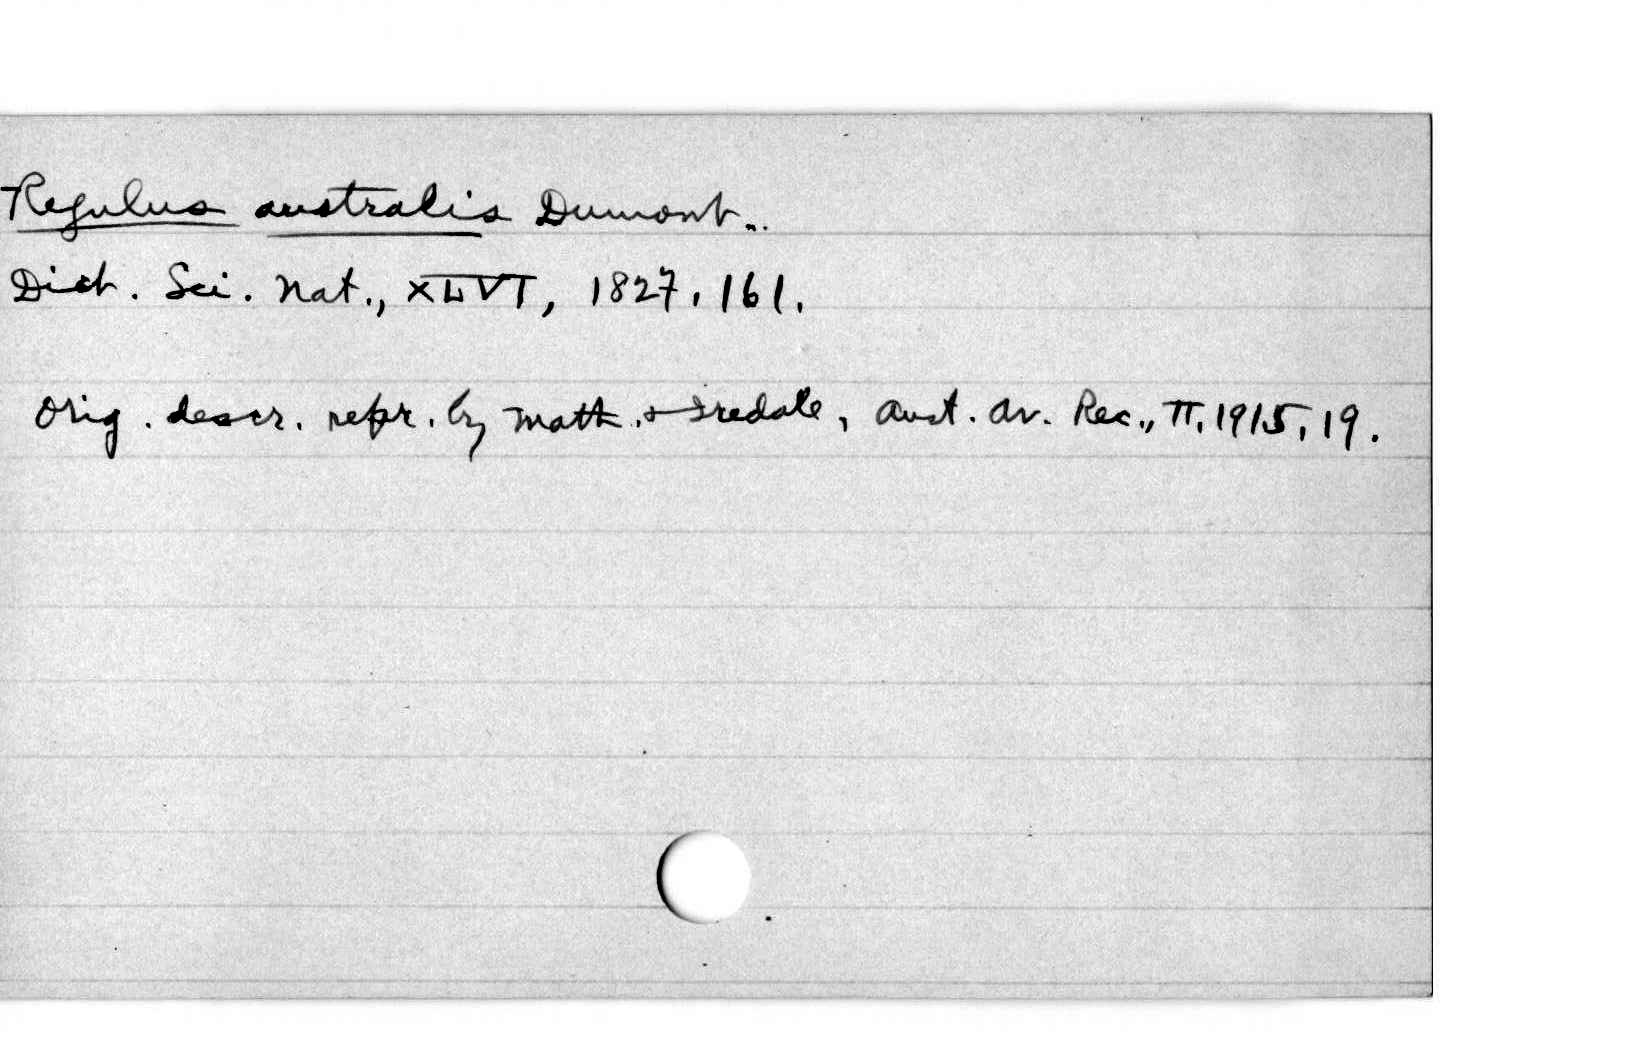 Regulus australis Dumont.
Dict. Sci. Nat., XLVI, 1827, 161.
Orig. descr. repr. by Math. & Iredale, Aust. Av. Rec., II, 1915, 19.